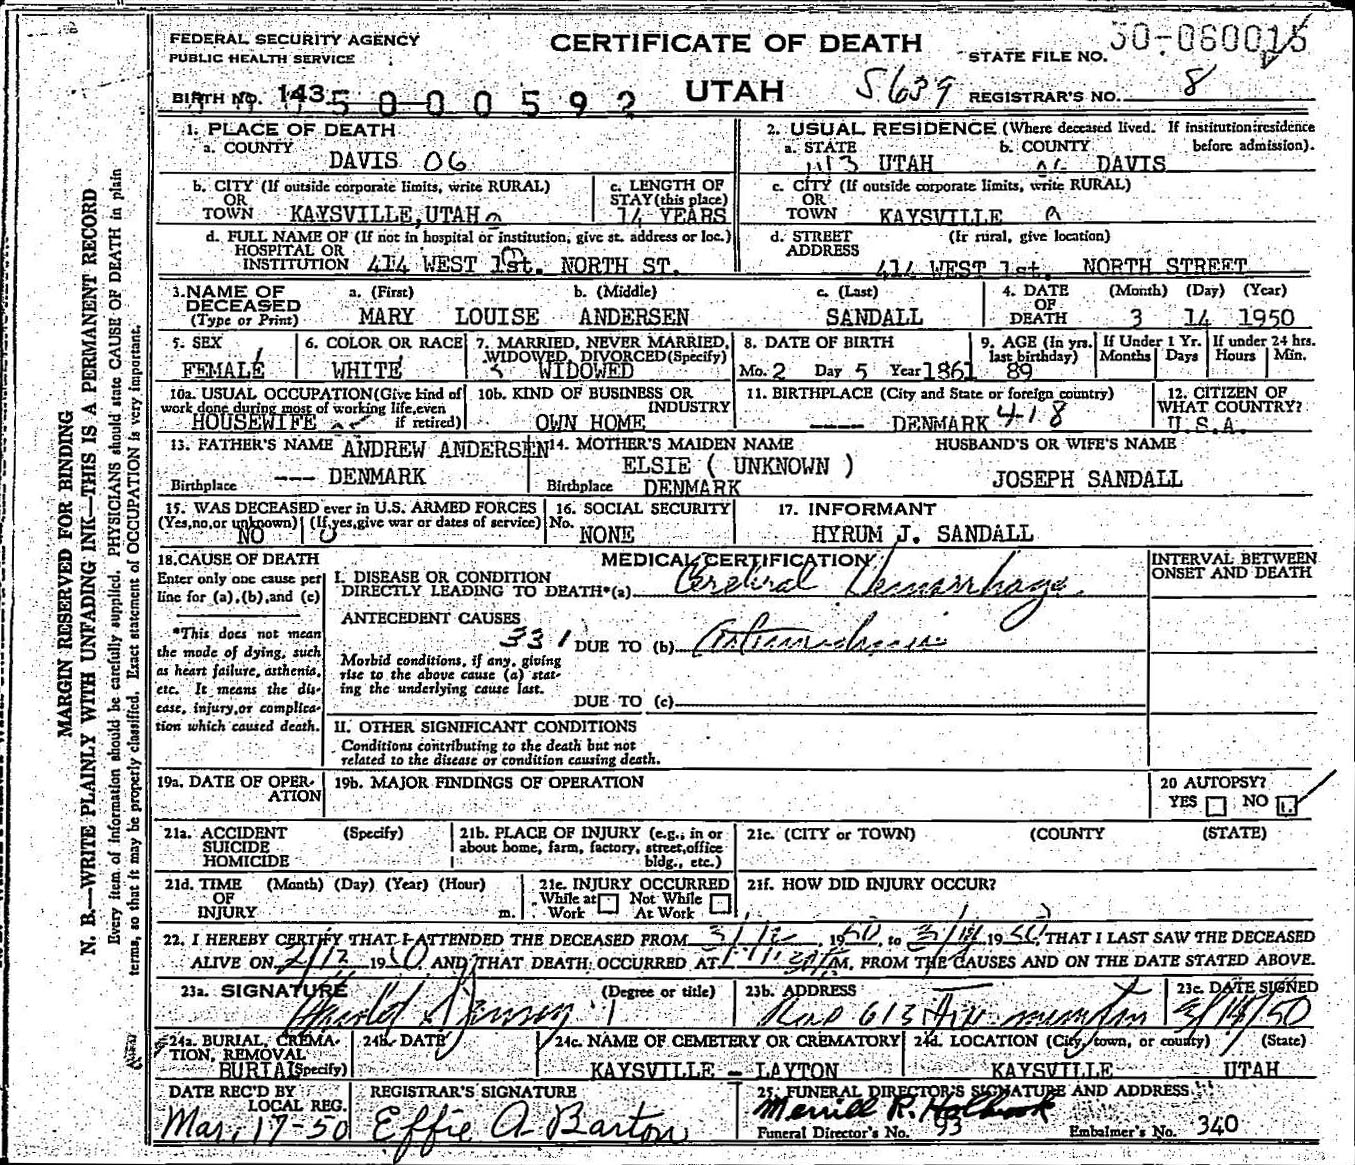 FEDERAL SECURITY AGENCY
PUBLIC HEALTH SERVICE
CERTIFICATE OF DEATH
STATE FILE NO. 50-060015
BIRTH NO. 143 5 0 0 0 5 9 2
UTAH
5639
REGISTRAR'S NO. 8
1. PLACE OF DEATH
a. COUNTY
DAVIS 06
2. USUAL RESIDENCE (Where deceased lived. If institution: residence before admission).
a. STATE
UTAH
b. COUNTY
DAVIS
b. CITY (If outside corporate limits, write RURAL)
OR
TOWN KAYSVILLE, UTAH
c. LENGTH OF
STAY (this place)
14 YEARS
c. CITY (If outside corporate limits, write RURAL)
OR
TOWN KAYSVILLE
d. FULL NAME OF (If not in hospital or institution, give st. address or loc.)
HOSPITAL OR
INSTITUTION 414 WEST 1st. NORTH ST.
d. STREET (If rural, give location)
ADDRESS
414 WEST 1st. NORTH STREET
3. NAME OF
DECEASED
(Type or Print)
a. (First) b. (Middle) c. (Last)
MARY LOUISE ANDERSEN SANDALL
4. DATE OF DEATH
(Month) (Day) (Year)
3 14 1950
5. SEX
FEMALE
6. COLOR OR RACE
WHITE
7. MARRIED, NEVER MARRIED,
WIDOWED, DIVORCED (Specify)
WIDOWED
8. DATE OF BIRTH
Mo. 2 Day 5 Year 1861
9. AGE (In yrs. last birthday)
89
If Under 1 Yr.
Months Days
If under 24 hrs.
Hours Min.
10a. USUAL OCCUPATION (Give kind of
work done during most of working life, even
if retired)
HOUSEWIFE
10b. KIND OF BUSINESS OR
INDUSTRY
OWN HOME
11. BIRTHPLACE (City and State or foreign country)
---- DENMARK 418
12. CITIZEN OF
WHAT COUNTRY?
U.S.A.
13. FATHER'S NAME ANDREW ANDERSEN
Birthplace --- DENMARK
14. MOTHER'S MAIDEN NAME
ELSIE ( UNKNOWN )
Birthplace DENMARK
HUSBAND'S OR WIFE'S NAME
JOSEPH SANDALL
15. WAS DECEASED ever in U.S. ARMED FORCES
(Yes, no, or unknown) (If yes, give war or dates of service)
NO 0
16. SOCIAL SECURITY
No.
NONE
17. INFORMANT
HYRUM J. SANDALL
18. CAUSE OF DEATH
Enter only one cause per
line for (a), (b), and (c)
*This does not mean
the mode of dying, such
as heart failure, asthenia,
etc. It means the dis-
ease, injury, or complica-
tion which caused death.
MEDICAL CERTIFICATION
I. DISEASE OR CONDITION
DIRECTLY LEADING TO DEATH*(a) Cerebral Hemorrhage
ANTECEDENT CAUSES
331 DUE TO (b)
Morbid conditions, if any, giving
rise to the above cause (a) stat-
ing the underlying cause last.
DUE TO (c)
II. OTHER SIGNIFICANT CONDITIONS
Conditions contributing to the death but not
related to the disease or condition causing death.
INTERVAL BETWEEN
ONSET AND DEATH
19a. DATE OF OPER-
ATION
19b. MAJOR FINDINGS OF OPERATION
20 AUTOPSY?
YES NO
21a. ACCIDENT (Specify)
SUICIDE
HOMICIDE
21b. PLACE OF INJURY (e.g., in or
about home, farm, factory, street, office
bldg., etc.)
21c. (CITY or TOWN) (COUNTY) (STATE)
21d. TIME (Month) (Day) (Year) (Hour)
OF
INJURY m.
21e. INJURY OCCURRED
While at Work Not While At Work
21f. HOW DID INJURY OCCUR?
22. I HEREBY CERTIFY THAT I ATTENDED THE DECEASED FROM 3/12, 1950, to 3/14, 1950, THAT I LAST SAW THE DECEASED
ALIVE ON 2/12 1950 AND THAT DEATH OCCURRED AT M. FROM THE CAUSES AND ON THE DATE STATED ABOVE.
23a. SIGNATURE (Degree or title)
Harold
23b. ADDRESS
613
23c. DATE SIGNED
3/14/50
24a. BURIAL, CREMA-
TION, REMOVAL
BURIAL (Specify)
24b. DATE
24c. NAME OF CEMETERY OR CREMATORY
KAYSVILLE - LAYTON
24d. LOCATION (City, town, or county) (State)
KAYSVILLE UTAH
DATE REC'D BY
LOCAL REG.
Mar. 17-50
REGISTRAR'S SIGNATURE
Effie A Barton
25. FUNERAL DIRECTOR'S SIGNATURE AND ADDRESS
Merrill R. Holbrook
Funeral Director's No. 93 Embalmer's No. 340
MARGIN RESERVED FOR BINDING
N. B.—WRITE PLAINLY WITH UNFADING INK—THIS IS A PERMANENT RECORD
Every item of information should be carefully supplied. PHYSICIANS should state CAUSE OF DEATH in plain
terms, so that it may be properly classified. Exact statement of OCCUPATION is very important.